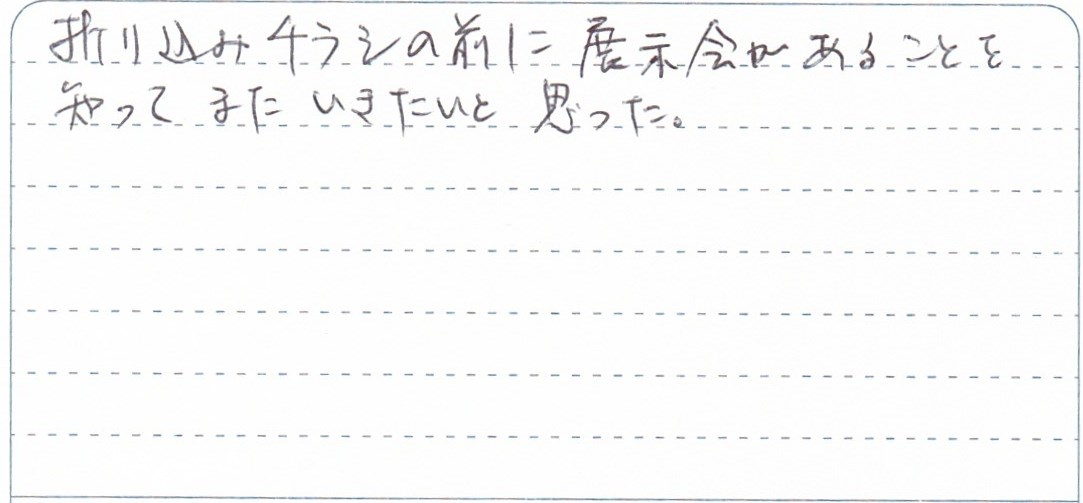 折り込みチラシの前に展示会があることを
知ってまたいきたいと思った。